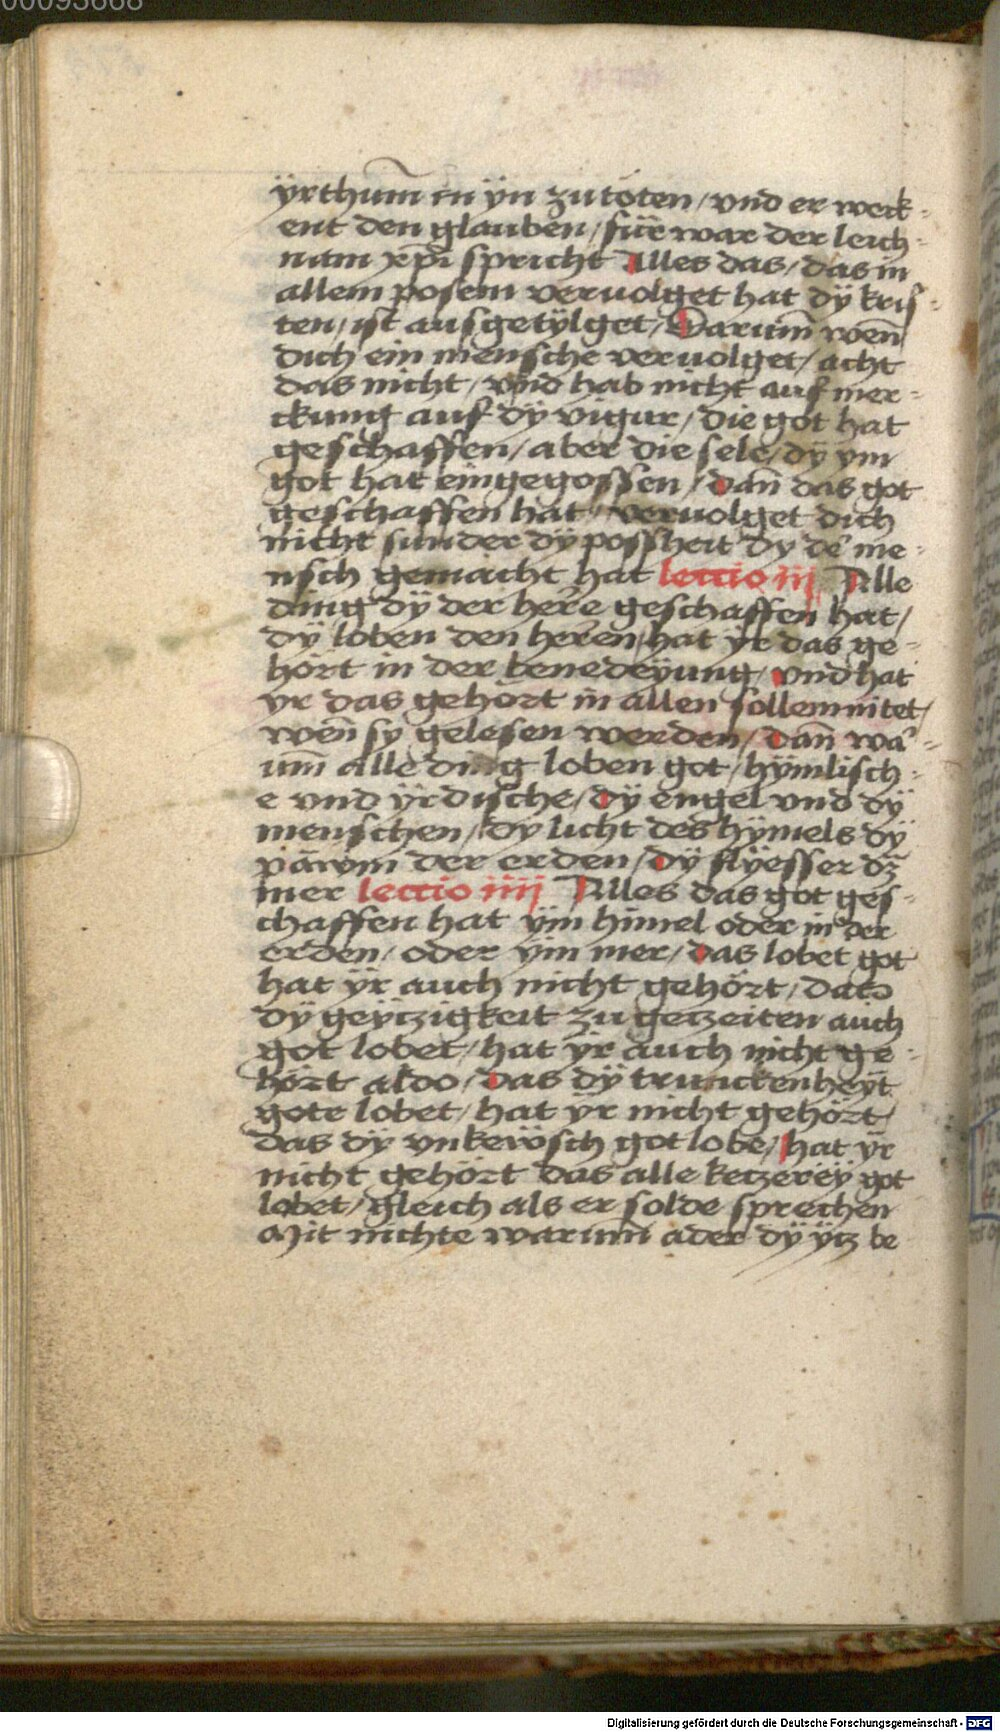 00093668
ÿrthum̄ in ÿn zu töten / vnd er weck-
ent den glauben / für war der leich-
nam xp̄i spricht Alles das / das in
allem posem veruolget hat dÿ kris-
ten / ist ausgetÿlget / Darum̄ wen̄
dich ein mensche veruolget / acht
das nicht / vnd hab nicht auf mer-
ckung auf dÿ vigur / die got hat
geschaffen / aber die sele / dÿ ym
got hat eingegossen / dan̄ das got
geschaffen hat / veruolget dich
nicht sunder dÿ possheit dÿ de᷎ me-
nsch gemacht hat lectio iij Alle
ding dÿ der herre geschaffen hat /
dÿ loben den herren / hat ÿr das ge-
hört in der benedeÿung / vnd hat
yr das gehört in allen sollemnitet /
wen̄ sy gelesen werden / dan̄ wa᷎-
um̄ alle ding loben got / hÿmlisch-
e vnd ÿrdische / dÿ engel vnd dÿ
menschen / dy licht des hÿmels dÿ
päwm der erden / dÿ flÿesser dz
mer lectio iiij Alles das got ges-
chaffen hat ÿm himel oder in der
erden / oder ym mer / das lobet got
hat ÿr auch nicht gehört / dat
dÿ geÿczigkeit zu geczeiten auch
got lobet / hat ÿr auch nicht ge-
hört aldo / das dÿ trunckenheÿt
gote lobet / hat ÿr nicht gehört /
das dÿ vnkewsch got lobe / hat ÿr
nicht gehört das alle keczereÿ got
lobet / gleich als er solde sprechen
Mit nichte warum̄ ader dÿ ÿcz be
Digitalisierung gefördert durch die Deutsche Forschungsgemeinschaft - DFG